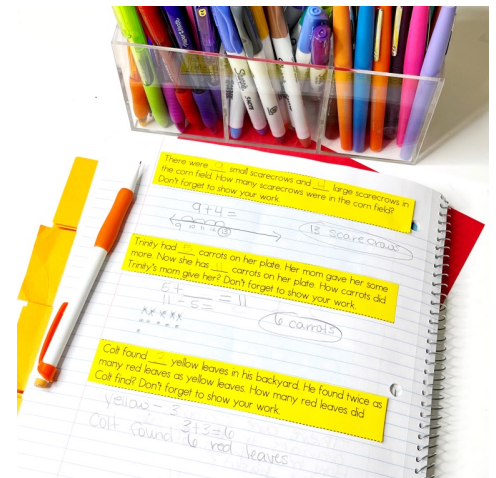 Sharpie
There were 9 small scarecrows and 4 large scarecrows in
the corn field. How many scarecrows were in the corn field?
Don't forget to show your work.
9+4=
9 10 11 12 13
13 scarecrows
Trinity had 5 carrots on her plate. Her mom gave her some
more. Now she has 11 carrots on her plate. How many carrots did
Trinity's mom give her? Don't forget to show your work.
5+ = 11
11-5=
6 carrots
Colt found 3 yellow leaves in his backyard. He found twice as
many red leaves as yellow leaves. How many red leaves did
Colt find? Don't forget to show your work.
yellow = 3
3+3=6
Colt found 6 red leaves